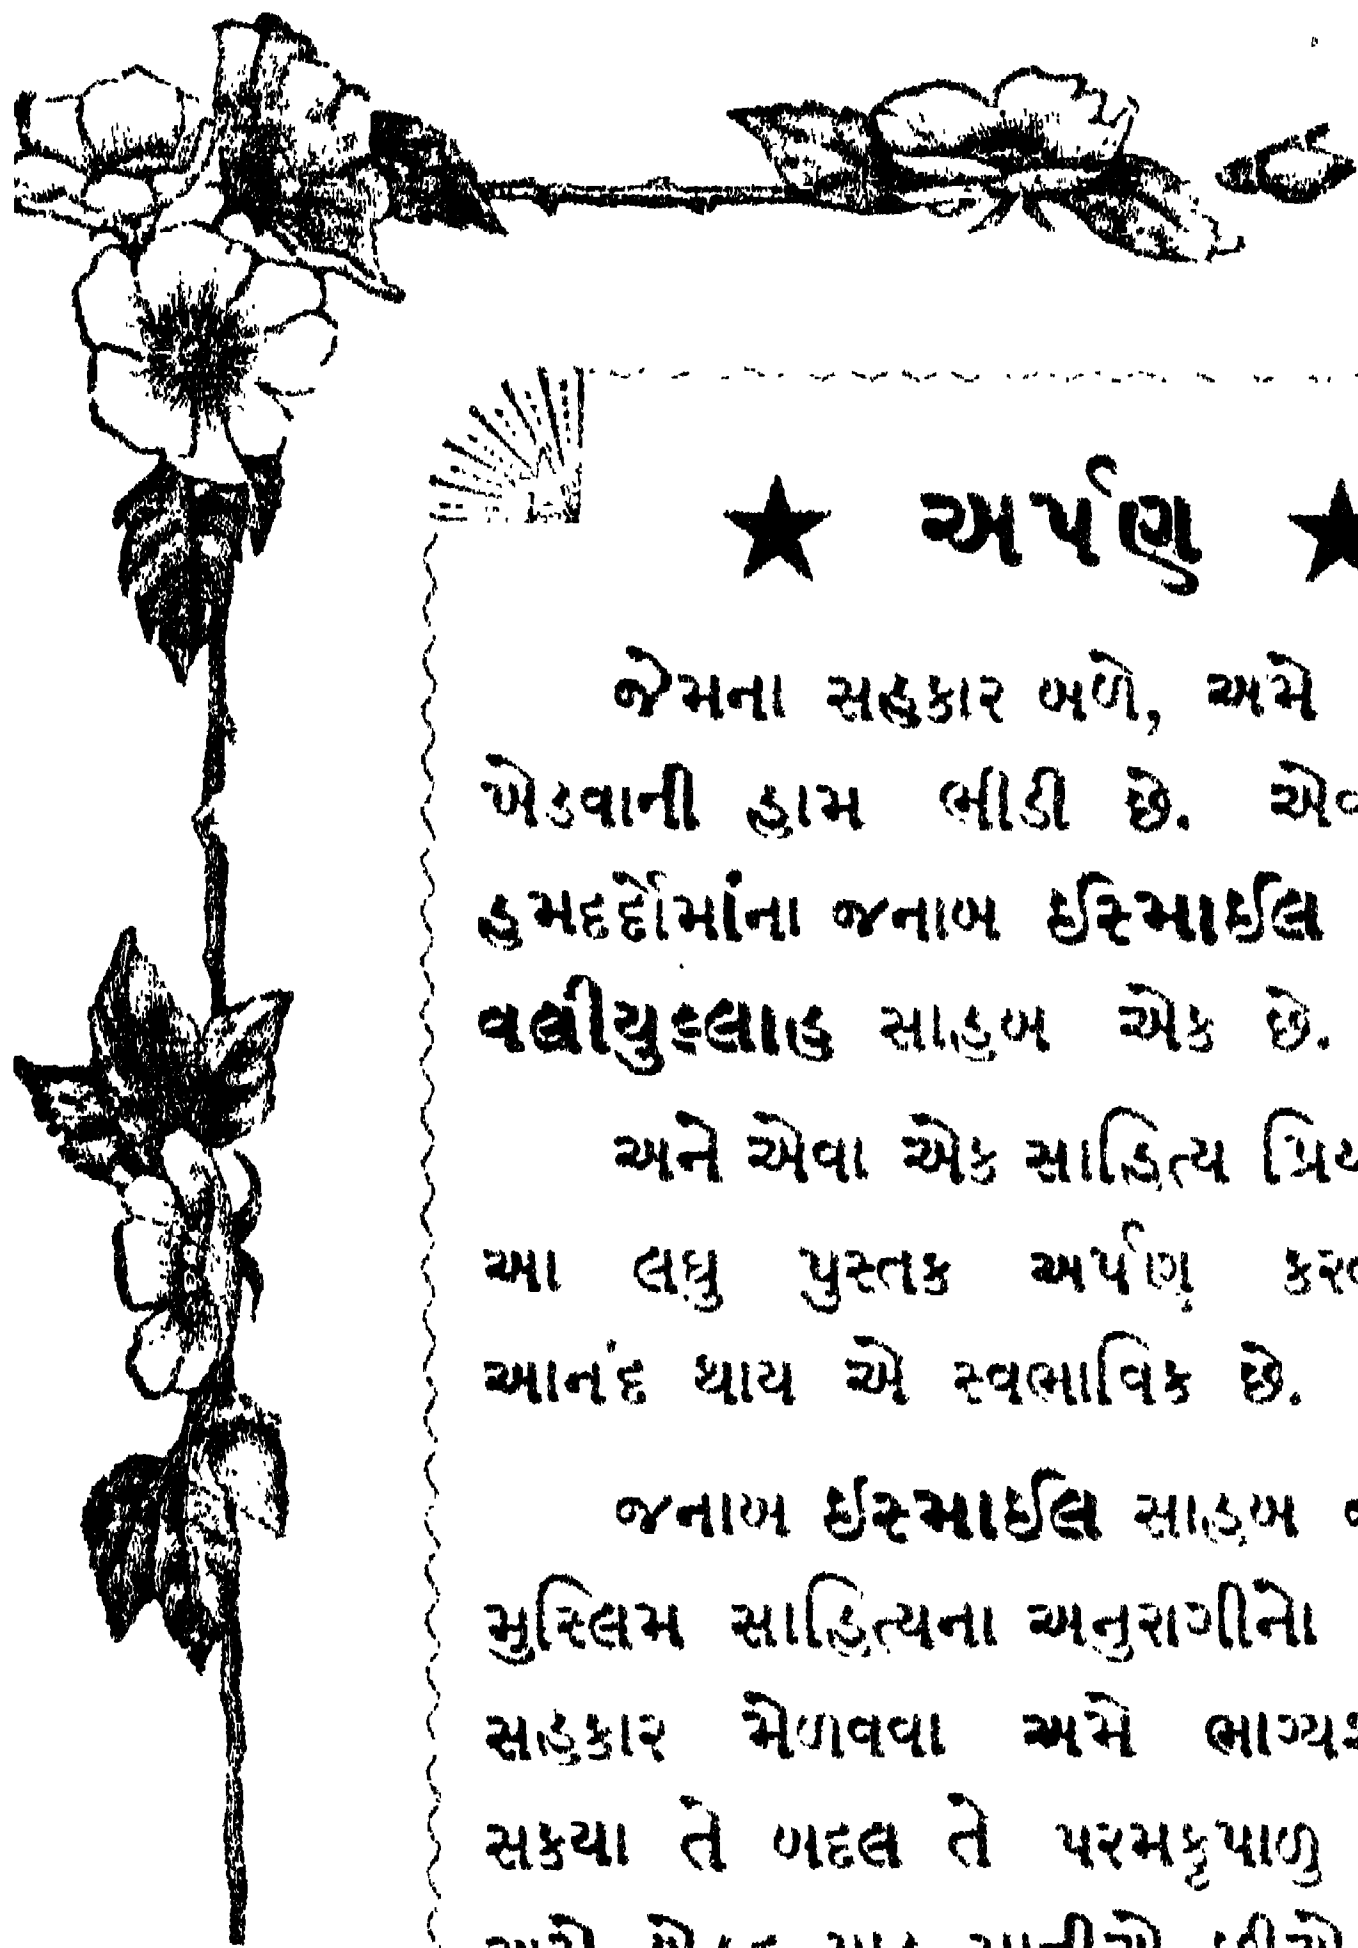 ★ અર્પણ ★
જેમના સહકાર બળે, અમે
ખેડવાની હામ ભીડી છે.
હમદર્દોમાંના જનાબ ઈસ્માઈલ
વલીયુલ્લાહ સાહબ એક છે.
અને એવા એક સાહિત્ય
આ લઘુ પુસ્તક અર્પણ
આનંદ થાય એ સ્વભાવિક છે.
જનાબ ઈસ્માઈલ સાહબ
મુસ્લિમ સાહિત્યના અનુરાગીનો
સહકાર મેળવવા અમે
સકયા તે બદલ તે પરમકૃપાળુ